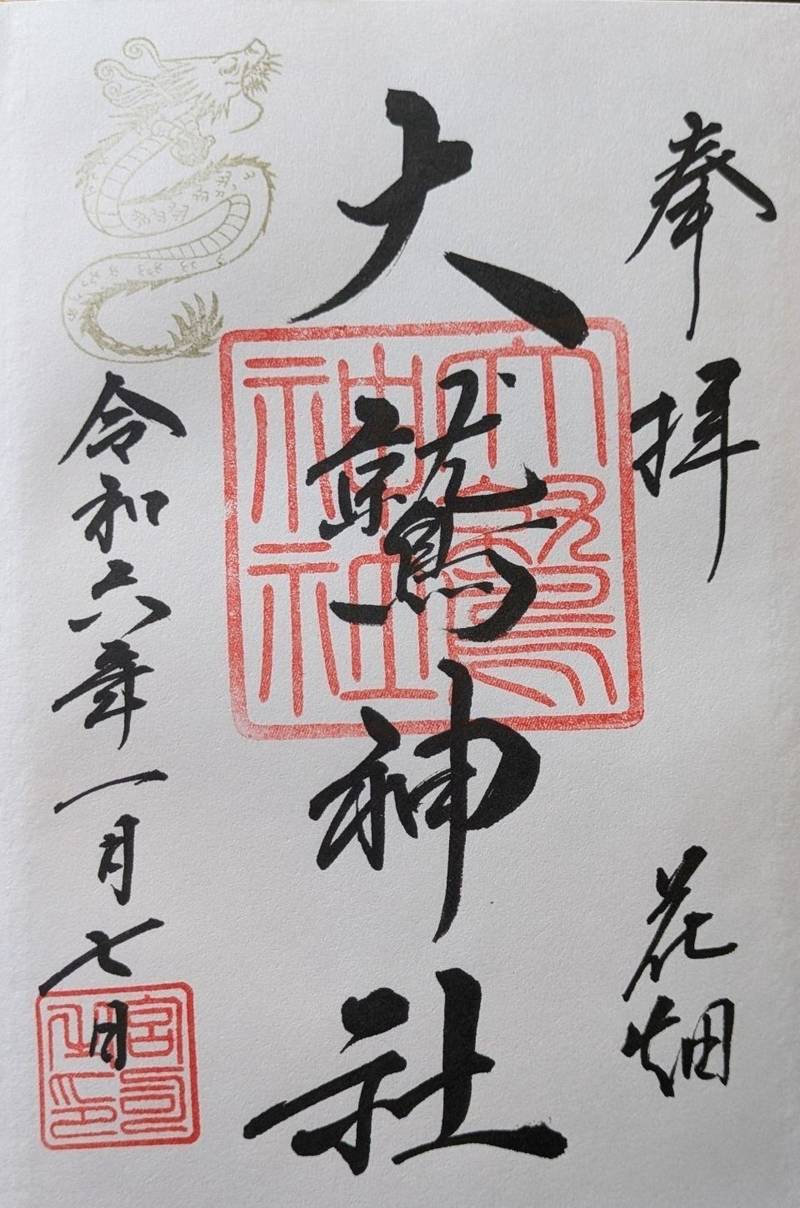 奉拝
花畑
大鷲神社
大鷲神社
令和六年一月七日
宮司之印